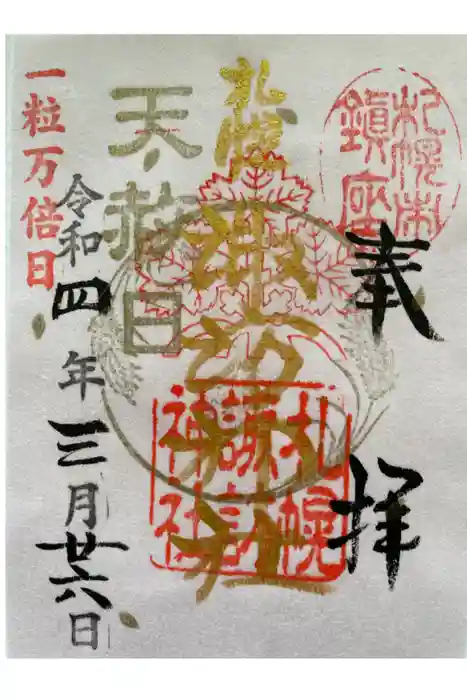 札幌市
鎮座
奉拝
札幌
諏訪神社
札幌
諏訪
神社
天赦日
令和四年三月廿六日
一粒万倍日